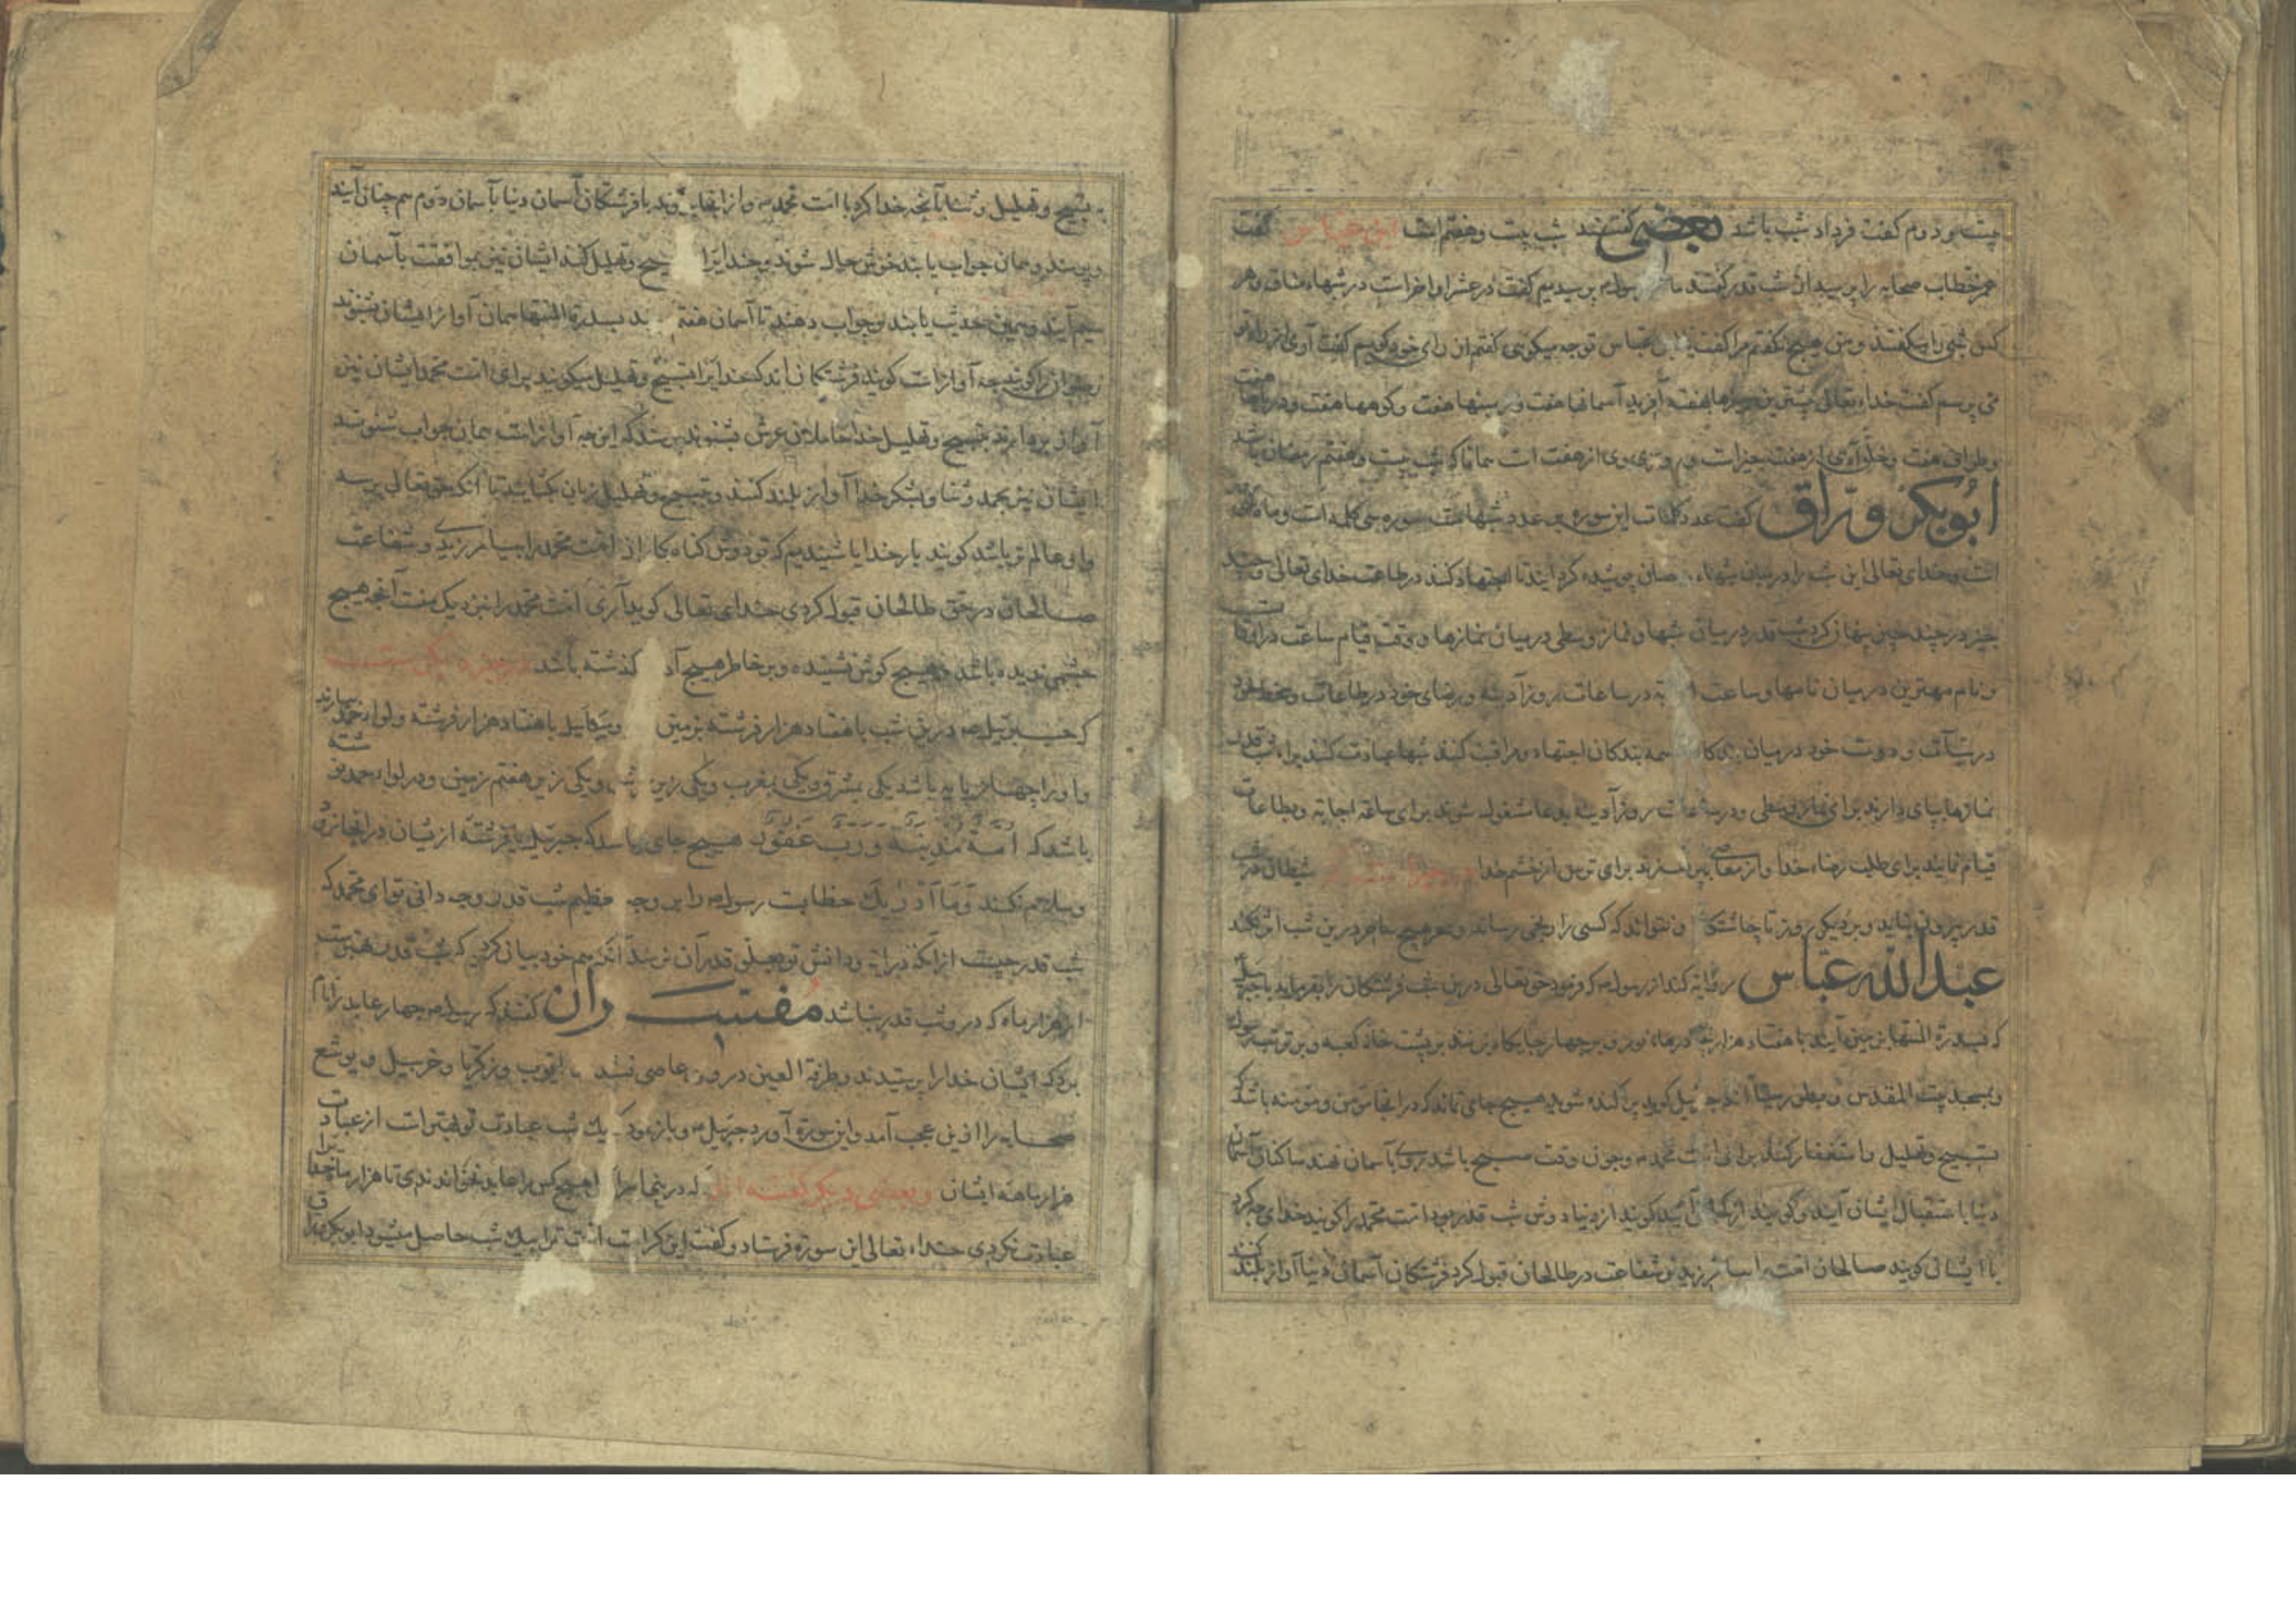 بیست و دوم کفت فرداد شب باشد بعضی کفتهند شب بیست و هفتم است ابن عباس کفت
عمر خطاب صحابه را پرسید از شب قدر کفتند ما رسولم پرسیدیم کفت در عشر اواخر است در شبهاء
کس شی را میکفتند و من هیچ نکفتم مرا کفت ابن عباس تو چه میکویی کفتم از رای خود کویم کفت آری از رای تو
می پرسم کفت خداء تعالی بیشترین چیزها هفت آفرید آسمانها هفت و زمینها هفت و کوهها هفت و دریاها هفت
و طواف هفت و خلق آدمی از هفت چیز است و روزی وی از هفت است همانا که شب بیست و هفتم رمضان باشد
ابوبکر وراق کفت عدد کلمات این سوره بر عدد شبهاست سوره سی کلمه است و ماه
است و خدای تعالی این شب را در میان شبهاء پوشیده کردانید تا اجتهاد کنند در طاعت خدای تعالی و چند
چیز در چند چیز پنهان کرد شب قدر در میان شبها و نماز وسطی در میان نمازها و وقت قیام ساعت در اوقات
و نام مهترین در میان نامها و ساعت در ساعات روز آدینه و رضای خود در طاعات و سخط خود
در سیآت و دوست خود در میان بندکان همه بندکان اجتهاد و مراقبت کنند شبها عبادت کنند براء شب قدر
نمازها بپای دارند برای نماز وسطی و در ساعات روز آدینه بدعا مشغول شوند برای ساعة اجابة و بطاعات
قیام نمایند برای طلب رضاء خدا و از معاصی بپرهیزند برای ترس از خشم خدا شیطان در شب
قدر بیرون نیاید و بر دیکر روز تا چاشتکاه و نتواند که کسی را رنجی رساند و سحر هیچ ساحر درین شب اثر نکند
عبدالله عباس روایة کند از رسولم که فرمود حق تعالی درین شب فرشتکان را بفرماید با جبرئیل
که بسدرة المنتها بزمین آیند با هفتاد هزار نور و بر چهار جایکاه بزنند بر پشت خانه کعبه و بر تربت رسول
و بمسجد بیت المقدس و بطور سینا آنکه جبرئیل کوید پراکنده شوید هیچ جای نماند که در انجا مومن و مومنه باشد که
تسبیح و تهلیل و استغفار کنند برای امت محمد و چون وقت صبح باشد روی بآسمان نهند ساکنان آسمان
دنیا باستقبال ایشان آیند و کویند از کجا آئید کویند از دنیا دوش شب قدر بود امت محمد را کویند خدای چه کرد
با ایشان کویند صالحان امت را بیامرزید و شفاعت در طالحان قبول کرد فرشتکان آسمان دنیا آواز بلند کنند
به تسبیح و تهلیل و ثنا بآنچه خدا کرد با امت محمد و از انجا بروند با فرشتکان آسمان دنیا بآسمان دوم هم چنان آیند
و پرسند و همان جواب یابند خوش حال شوند و خدایرا تسبیح و تهلیل کنند ایشان نیز بموافقت بآسمان
سیم آیند و همین حدیث یابند و جواب دهند تا آسمان هفتم بسدرة المنتها همان آواز ایشان بشنوند
رضوانرا کویند چه آواز است کویند فرشتکان اند که خدایرا تسبیح و تهلیل میکویند برای امت محمد ایشان نیز
آواز بردارند بتسبیح و تهلیل خدا حاملان عرش بشنوند پرسند که این چه آواز است همان جواب شنوند
ایشان نیز بحمد و ثنا و بشکر خدا آواز بلند کنند و بتسبیح و تهلیل زبان کشایند تا آنکه حق تعالی پرسد
و او عالم تر باشد کویند بار خدایا شنیدیم که تو دوش کناه کاران امت محمد را بیامرزیدی و شفاعت
صالحان در حق طالحان قبول کردی خدای تعالی کوید آری امت محمد را بنزدیک منست آنچه هیچ
چشمی ندیده باشد و هیچ کوش نشنیده و بر خاطر هیچ کذشته باشد در خبر دیکر
که جبرئیل درین شب با هفتاد هزار فرشته بزمین و میکائیل با هفتاد هزار فرشته و لواء حمد بیارند
و او را چهار باشد یکی بمشرق و یکی بمغرب و یکی زیر و یکی زیر هفتم زمین و در لواء حمد نوشته
باشد که امة مذنبة ورب غفور هیچ جای نباشد که جبرئیل یا فرشتهٔ از ایشان در انجا نرود
و سلام نکند وما ادریک خطابست رسولم را بر وجه عظیم شب قدر و چه دانی تو ای محمد که
شب قدر چیست از آنکه درایة و دانش تو بعلو قدر آن نرسد آنکه هم خود بیان کرد که شب قدر بهترست
از هزار ماه که در و شب قدر نباشد مفسران کفتند که رسولم چهار عابد را نام
برد که ایشان خدا را پرستیدند و طرفة العین در و عاصی نشدند ایوب و زکریا و حزبیل و یوشع
صحابه را ازین عجب آمد و این سوره آورد جبرئیل و باز نمود که یک شب عبادت تو بهتر است از عبادت
هزار ماهه ایشان و بعضی دیکر کفته اند که هیچ کس را عابد نخواندندی تا هزار ماه خدا را
عبادت نکردی خداء تعالی این سوره فرستاد و کفت این کرامت امت ترا بیک شب حاصل میشود ابوبکر وراق